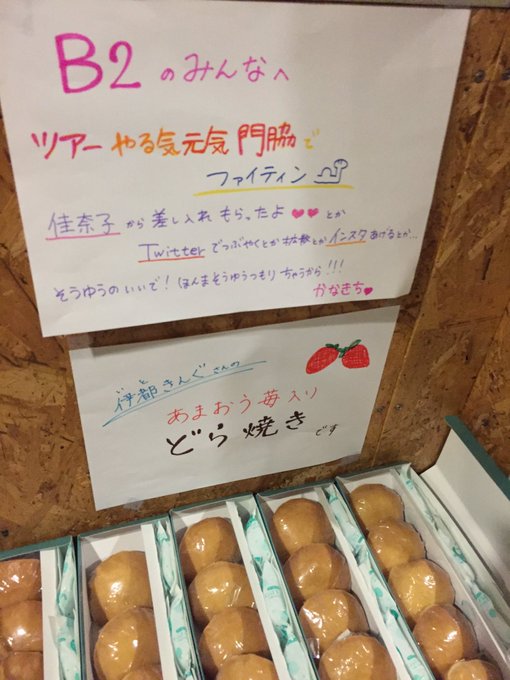 B2のみんなへ
ツアーやる気元気門脇で
ファイティン
佳奈子から差し入れもらったよ♥♥とか
Twitterでつぶやくとか拡散とかインスタあげるとか…
そうゆうのいいで!ほんまそうゆうつもりちゃうから!!!
かなきち♥
いと
伊都きんぐさんの
あまおう苺入り
どら焼きです